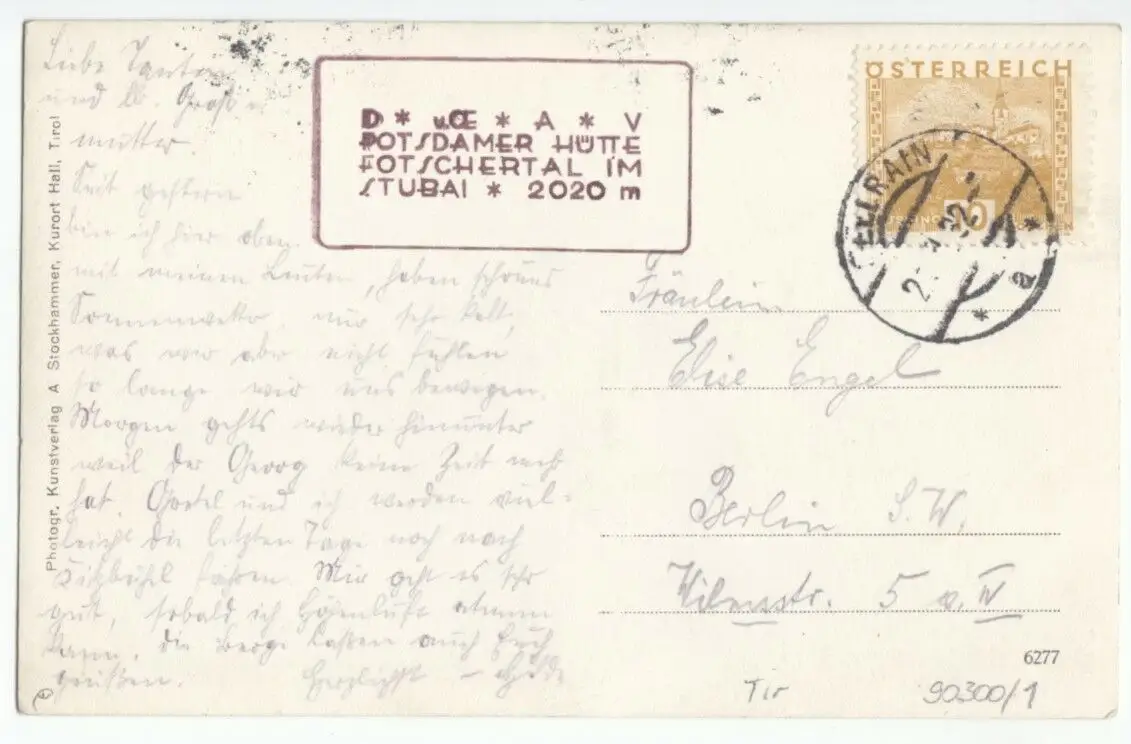 Liebe Tanten
und lb. Groß=
mutter.
Seit gestern
bin ich hier oben
mit meinen Leuten, haben schönes
Sonnenwetter, nur sehr kalt,
was wir aber nicht fühlen
so lange wir uns bewegen.
Morgen gehts wieder hinunter
weil der Georg keine Zeit mehr
hat. Gretel und ich werden viel=
leicht die letzten Tage noch nach
Kitzbühl fahren. Mir geht es sehr
gut, sobald ich Höhenluft atmen
kann. Die Berge lassen auch Euch
grüßen. Herzlichst –
D * u.OE * A * V
POTSDAMER HÜTTE
FOTSCHERTAL IM
STUBAI * 2020 m
ÖSTERREICH
SELLRAIN
Fräulein
Elise Engel
Berlin S.W.
Wilmsstr. 5 v. IV
6277
Tir 90300/1
Photogr. Kunstverlag A Stockhammer, Kurort Hall, Tirol